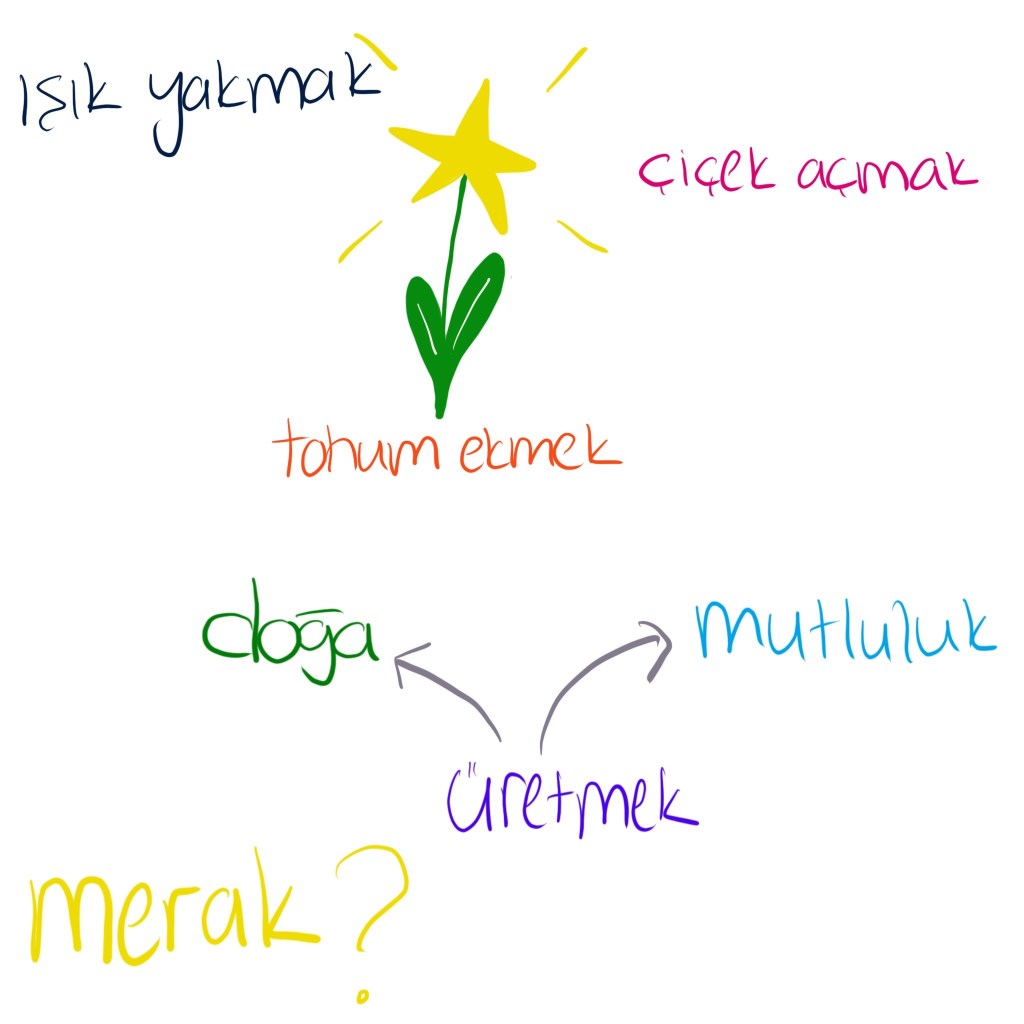 ışık yakmak
çiçek açmak
tohum ekmek
doğa
mutluluk
üretmek
merak?